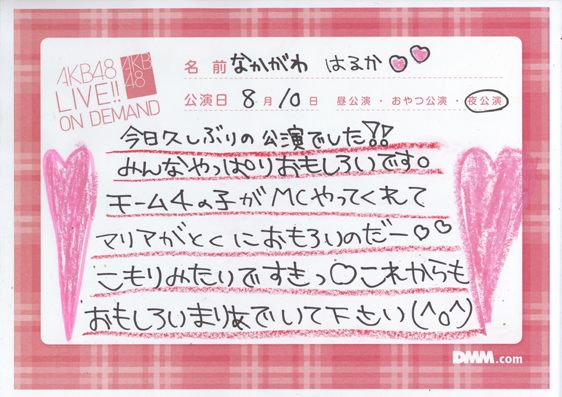 AKB48
LIVE!!
ON DEMAND
AKB
48
名前 なかがわ はるか
公演日 8月10日 昼公演・おやつ公演・夜公演
今日久しぶりの公演でした!!
みんなやっぱりおもしろいです。
チーム4の子がMCやってくれて
マリアがとくにおもろいのだー♡♡
こもりみたいですきっ♡これからも
おもしろいまりあでいて下さい(^o^)
DMM.com